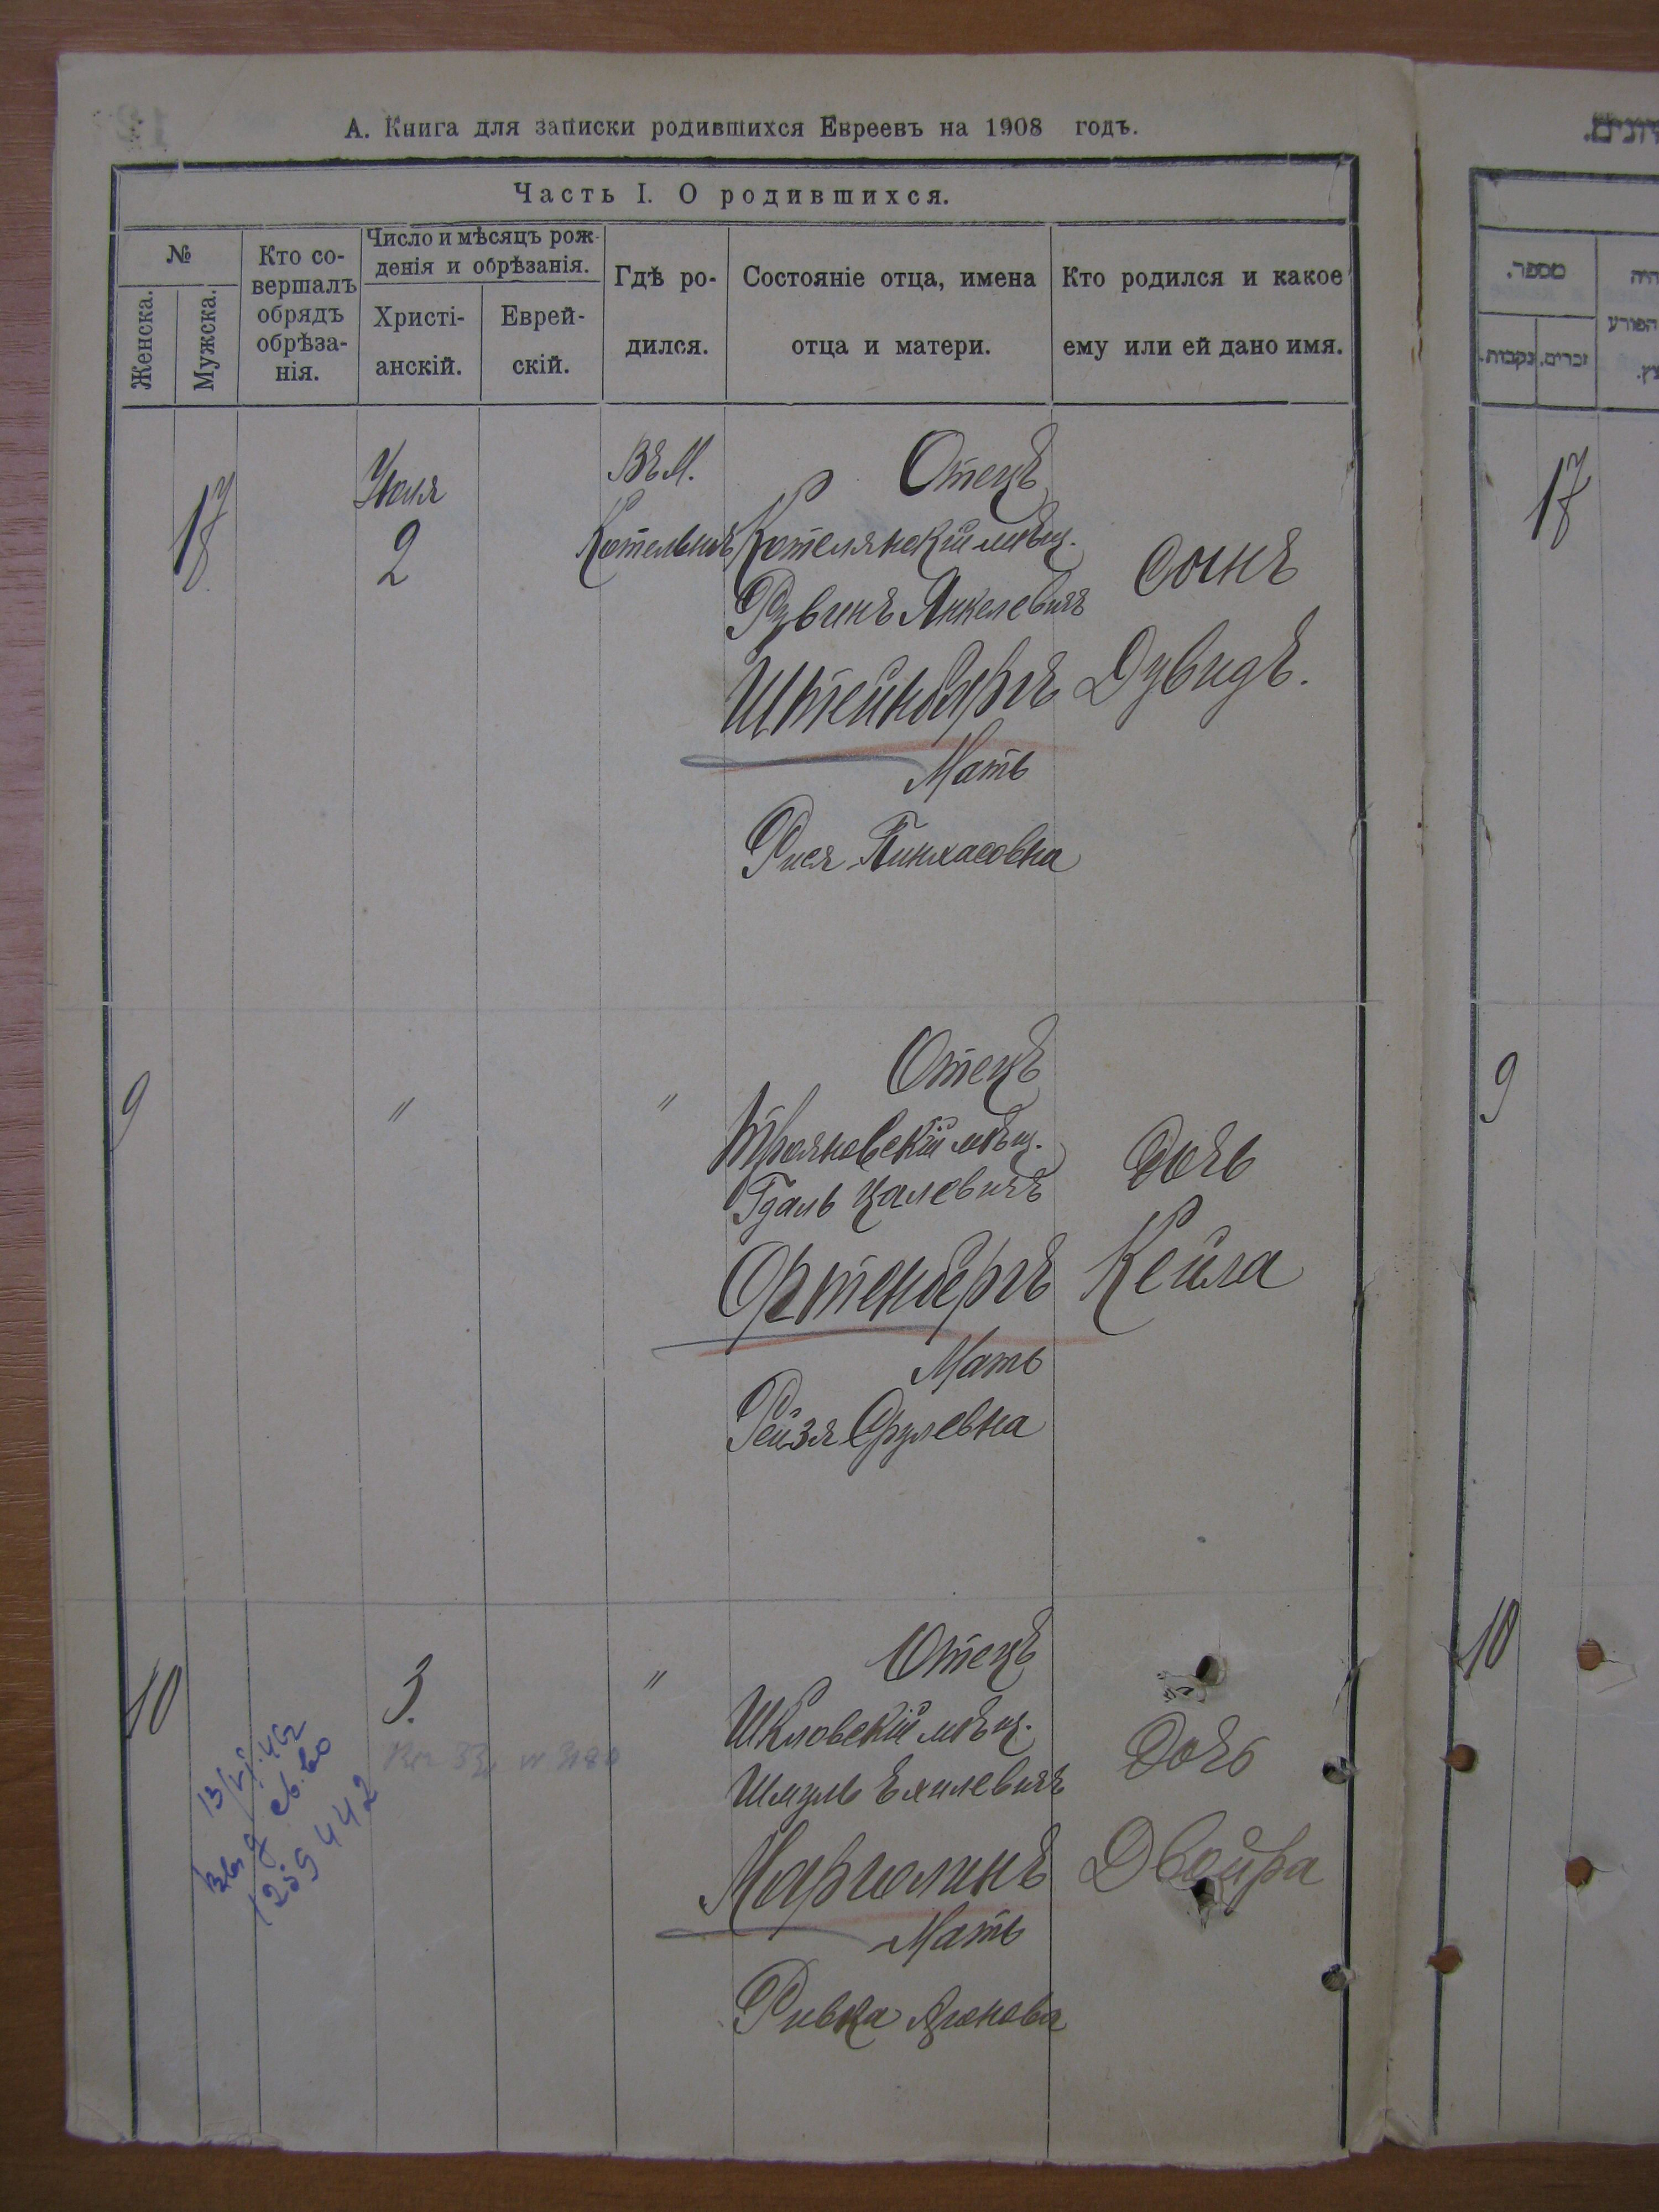 А. Книга для записки родившихся Евреевъ на 1908 годъ.
Часть I. О родившихся.
№
Женска.
Мужска.
Кто со-
вершалъ
обрядъ
обрѣза-
нія.
Число и мѣсяцъ рож-
денія и обрѣзанія.
Христі-
анскій.
Еврей-
скій.
Гдѣ ро-
дился.
Состояніе отца, имена
отца и матери.
Кто родился и какое
ему или ей дано имя.
17
2
Въ М.
Котельнѣ
Отецъ
Котелянскій мѣщ.
Рувинъ Янкелевичъ
Штейнбергъ
Мать
Рися Пинхасовна
Сынъ
Дувидъ.
9
"
"
Отецъ
Трояновскій мѣщ.
Гдаль Цалевичъ
Ортенбергъ
Мать
Рейзя Срулевна
Дочь
Кейла
10
3.
"
Отецъ
Шкловскій мѣщ.
Шмуль
Марголинъ
Мать
Ривка
Дочь
Двойра
1259442
מספר.
זכרים.
נקבות.
17
9
10